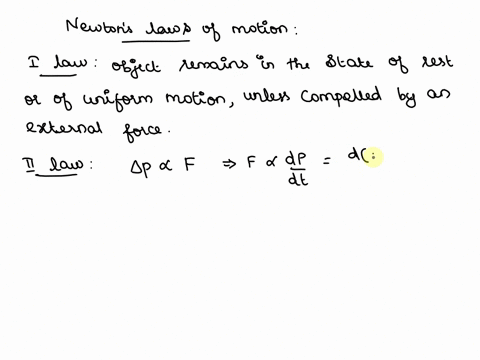 Newton's laws of motion:
I law: object remains in the state of rest
or of uniform motion, unless compelled by an
external force.
II law: Δp ∝ F ⇒ F ∝ dP/dt = d(